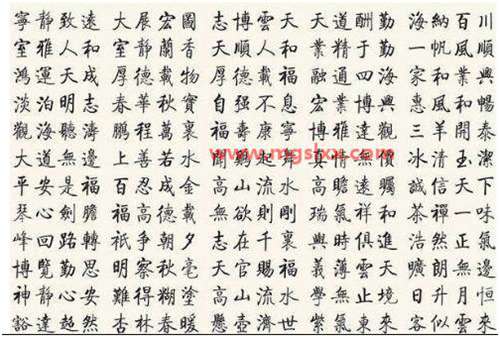 寧靜致遠 大展宏圖 志博雲天 天道酬勤 海納百川
室雅人和 室靜蘭香 大順人和 業精于勤 一帆風順
鴻運天成 厚德載物 厚德載福 融通四海 家和業興
淡泊明志 春華秋實 自強不息 宏業博興 惠風和暢
觀海聽濤 鵬程萬裏 福壽康寧 博雅達觀 三羊開泰
大道無邊 上善若水 聞鷄起舞 情無價 冰清玉潔
www.mgslxx.com
平安是福 百忍成金 高山流水 高瞻遠矚 誠信天下
琴心劍膽 福高德載 無欲則剛 瑞氣祥和 茶禪一味
峰回路轉 祇爭朝夕 志在千裏 與時俱進 浩然正氣
博覽勤思 明察秋毫 天官賜福 義薄雲天 曠朗無邊
神靜心安 難得糊塗 高山流水 學無止境 日升月恒
豁達超然 杏林春暖 懸壺濟世 紫氣東來 客似雲來